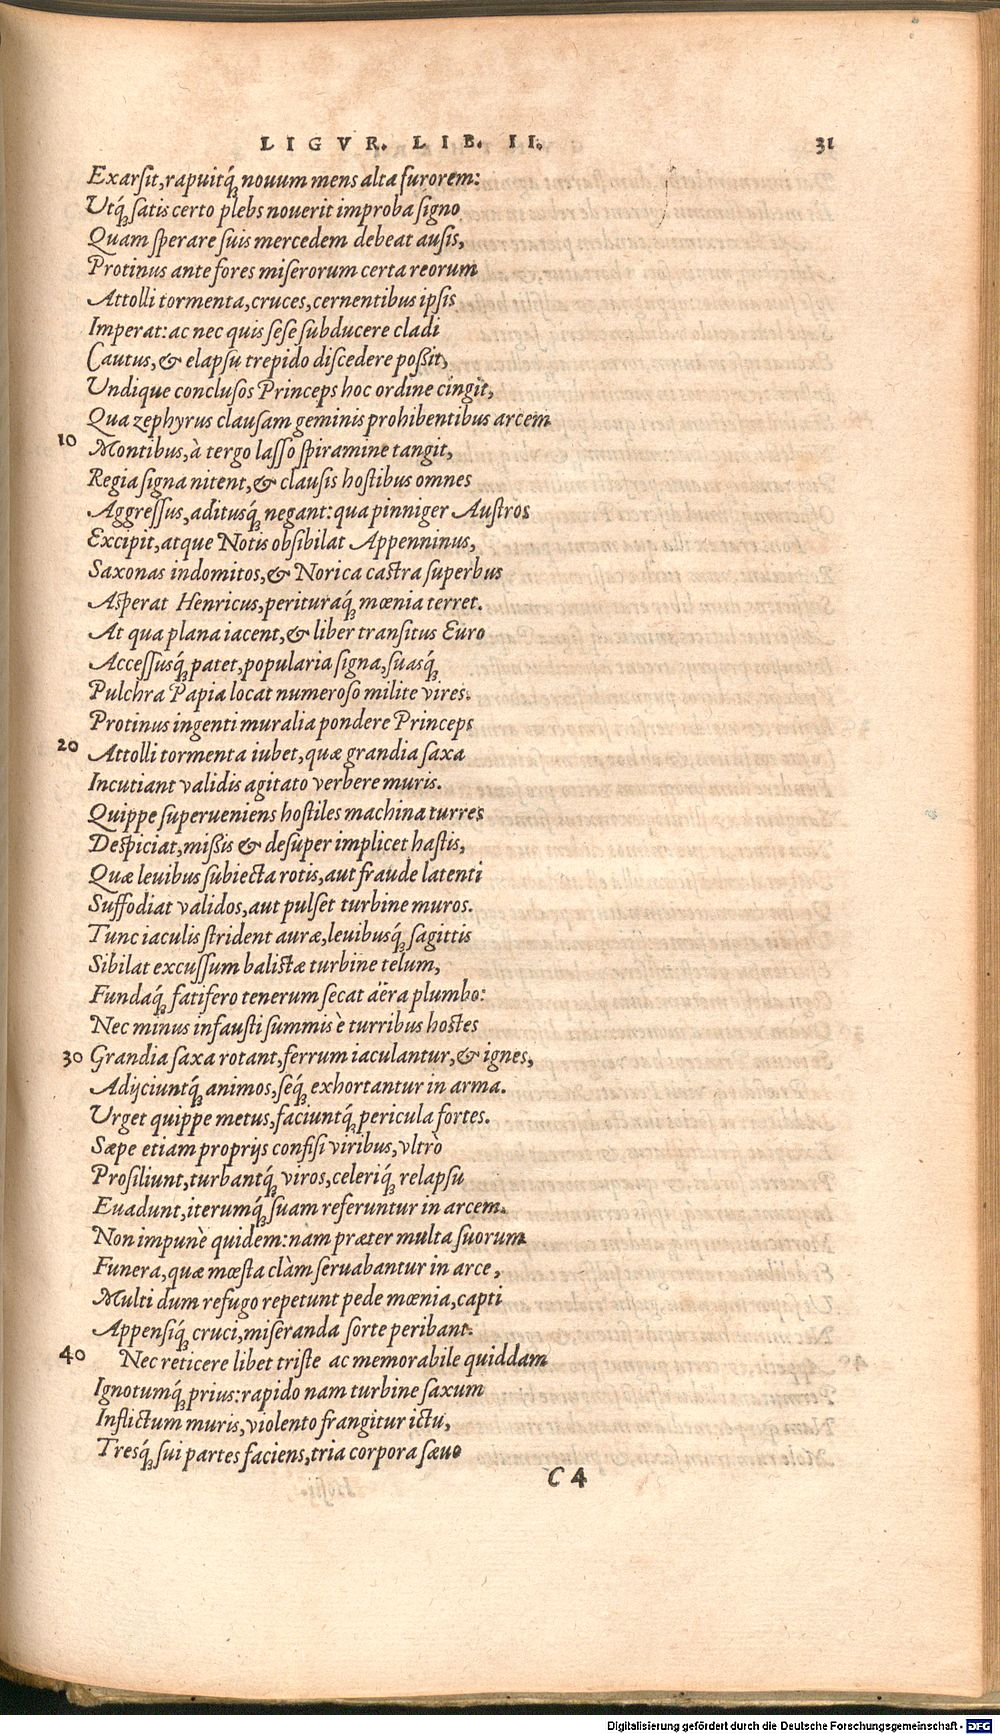 LIGVR. LIB. II. 31
Exarsit, rapuitq́; nouum mens alta furorem:
Utq́; satis certo plebs nouerit improba signo
Quam sperare suis mercedem debeat ausis,
Protinus ante fores miserorum certa reorum
Attolli tormenta, cruces, cernentibus ipsis
Imperat: ac nec quis sese subducere cladi
Cautus, & elapsu trepido discedere poßit,
Undique conclusos Princeps hoc ordine cingit,
Qua zephyrus clausam geminis prohibentibus arcem
10 Montibus, à tergo lasso spiramine tangit,
Regia signa nitent, & clausis hostibus omnes
Aggressus, aditusq́; negant: qua pinniger Austros
Excipit, atque Notis obsibilat Appenninus,
Saxonas indomitos, & Norica castra superbus
Asperat Henricus, perituraq́; mœnia terret.
At qua plana iacent, & liber transitus Euro
Accessusq́; patet, popularia signa, suasq́;
Pulchra Papia locat numeroso milite vires.
Protinus ingenti muralia pondere Princeps
20 Attolli tormenta iubet, quæ grandia saxa
Incutiant validis agitato verbere muris.
Quippe superueniens hostiles machina turres
Despiciat, mißis & desuper implicet hastis,
Quæ leuibus subiecta rotis, aut fraude latenti
Suffodiat validos, aut pulset turbine muros.
Tunc iaculis strident auræ, leuibusq́; sagittis
Sibilat excussum balistæ turbine telum,
Fundaq́; fatifero tenerum secat aëra plumbo:
Nec minus infausti summis è turribus hostes
30 Grandia saxa rotant, ferrum iaculantur, & ignes,
Adijciuntq́; animos, seq́; exhortantur in arma.
Urget quippe metus, faciuntq́; pericula fortes.
Sæpe etiam proprijs confisi viribus, vltrò
Prosiliunt, turbantq́; viros, celeriq́; relapsu
Euadunt, iterumq́; suam referuntur in arcem.
Non impunè quidem: nam præter multa suorum
Funera, quæ mœsta clàm seruabantur in arce,
Multi dum refugo repetunt pede mœnia, capti
Appensiq́; cruci, miseranda sorte peribant.
40 Nec reticere libet triste ac memorabile quiddam
Ignotumq́; prius: rapido nam turbine saxum
Inflictum muris, violento frangitur ictu,
Tresq́; sui partes faciens, tria corpora sæuo
C 4
Digitalisierung gefördert durch die Deutsche Forschungsgemeinschaft - DFG